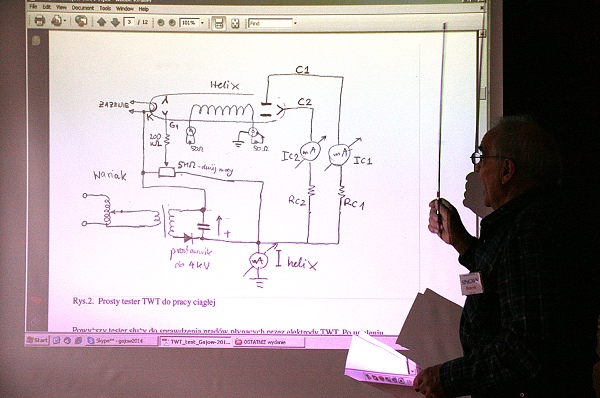 File Edit View Document Tools Window Help
3 / 12
101%
Find
Helix
C1
C2
ŻARZENIE
K
G1
200
kΩ
50Ω
50Ω
mA
IC2
mA
IC1
5MΩ - dużej mocy
Wariak
RC2
RC1
prostownik
do 4kV
-
+
mA
I helix
Rys.2. Prosty tester TWT do pracy ciągłej
Powyższy tester służy do sprawdzenia prądów płynących przez elektrody TWT. Po ustaleniu
Start
Skype™ - gajow2014
TWT_test_Gajow-201...
OSTATNIE wydanie